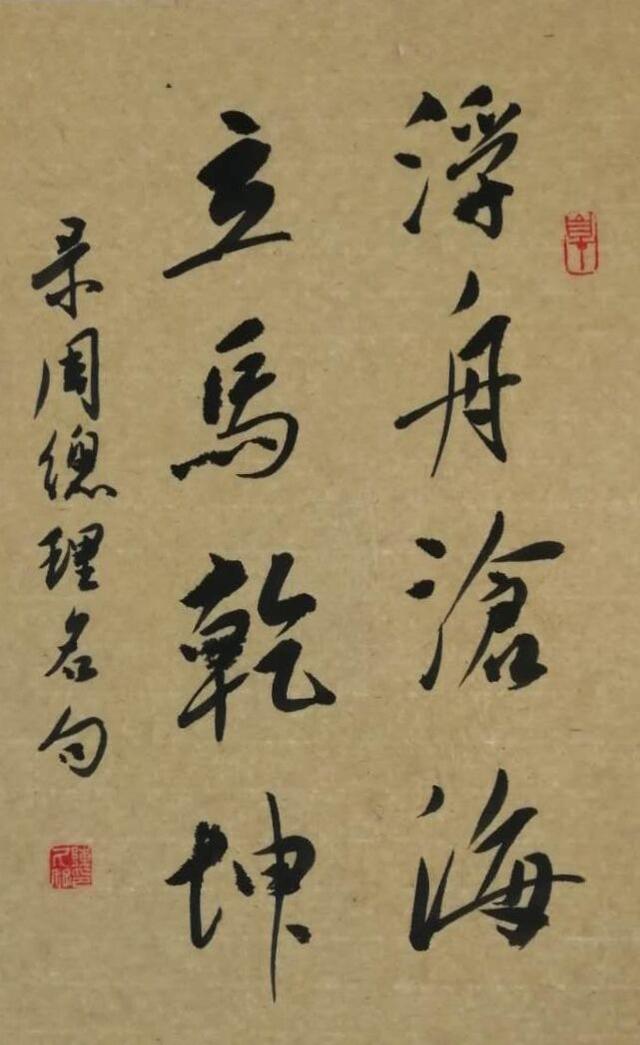 浮舟滄海
立馬乾坤
录周總理名句